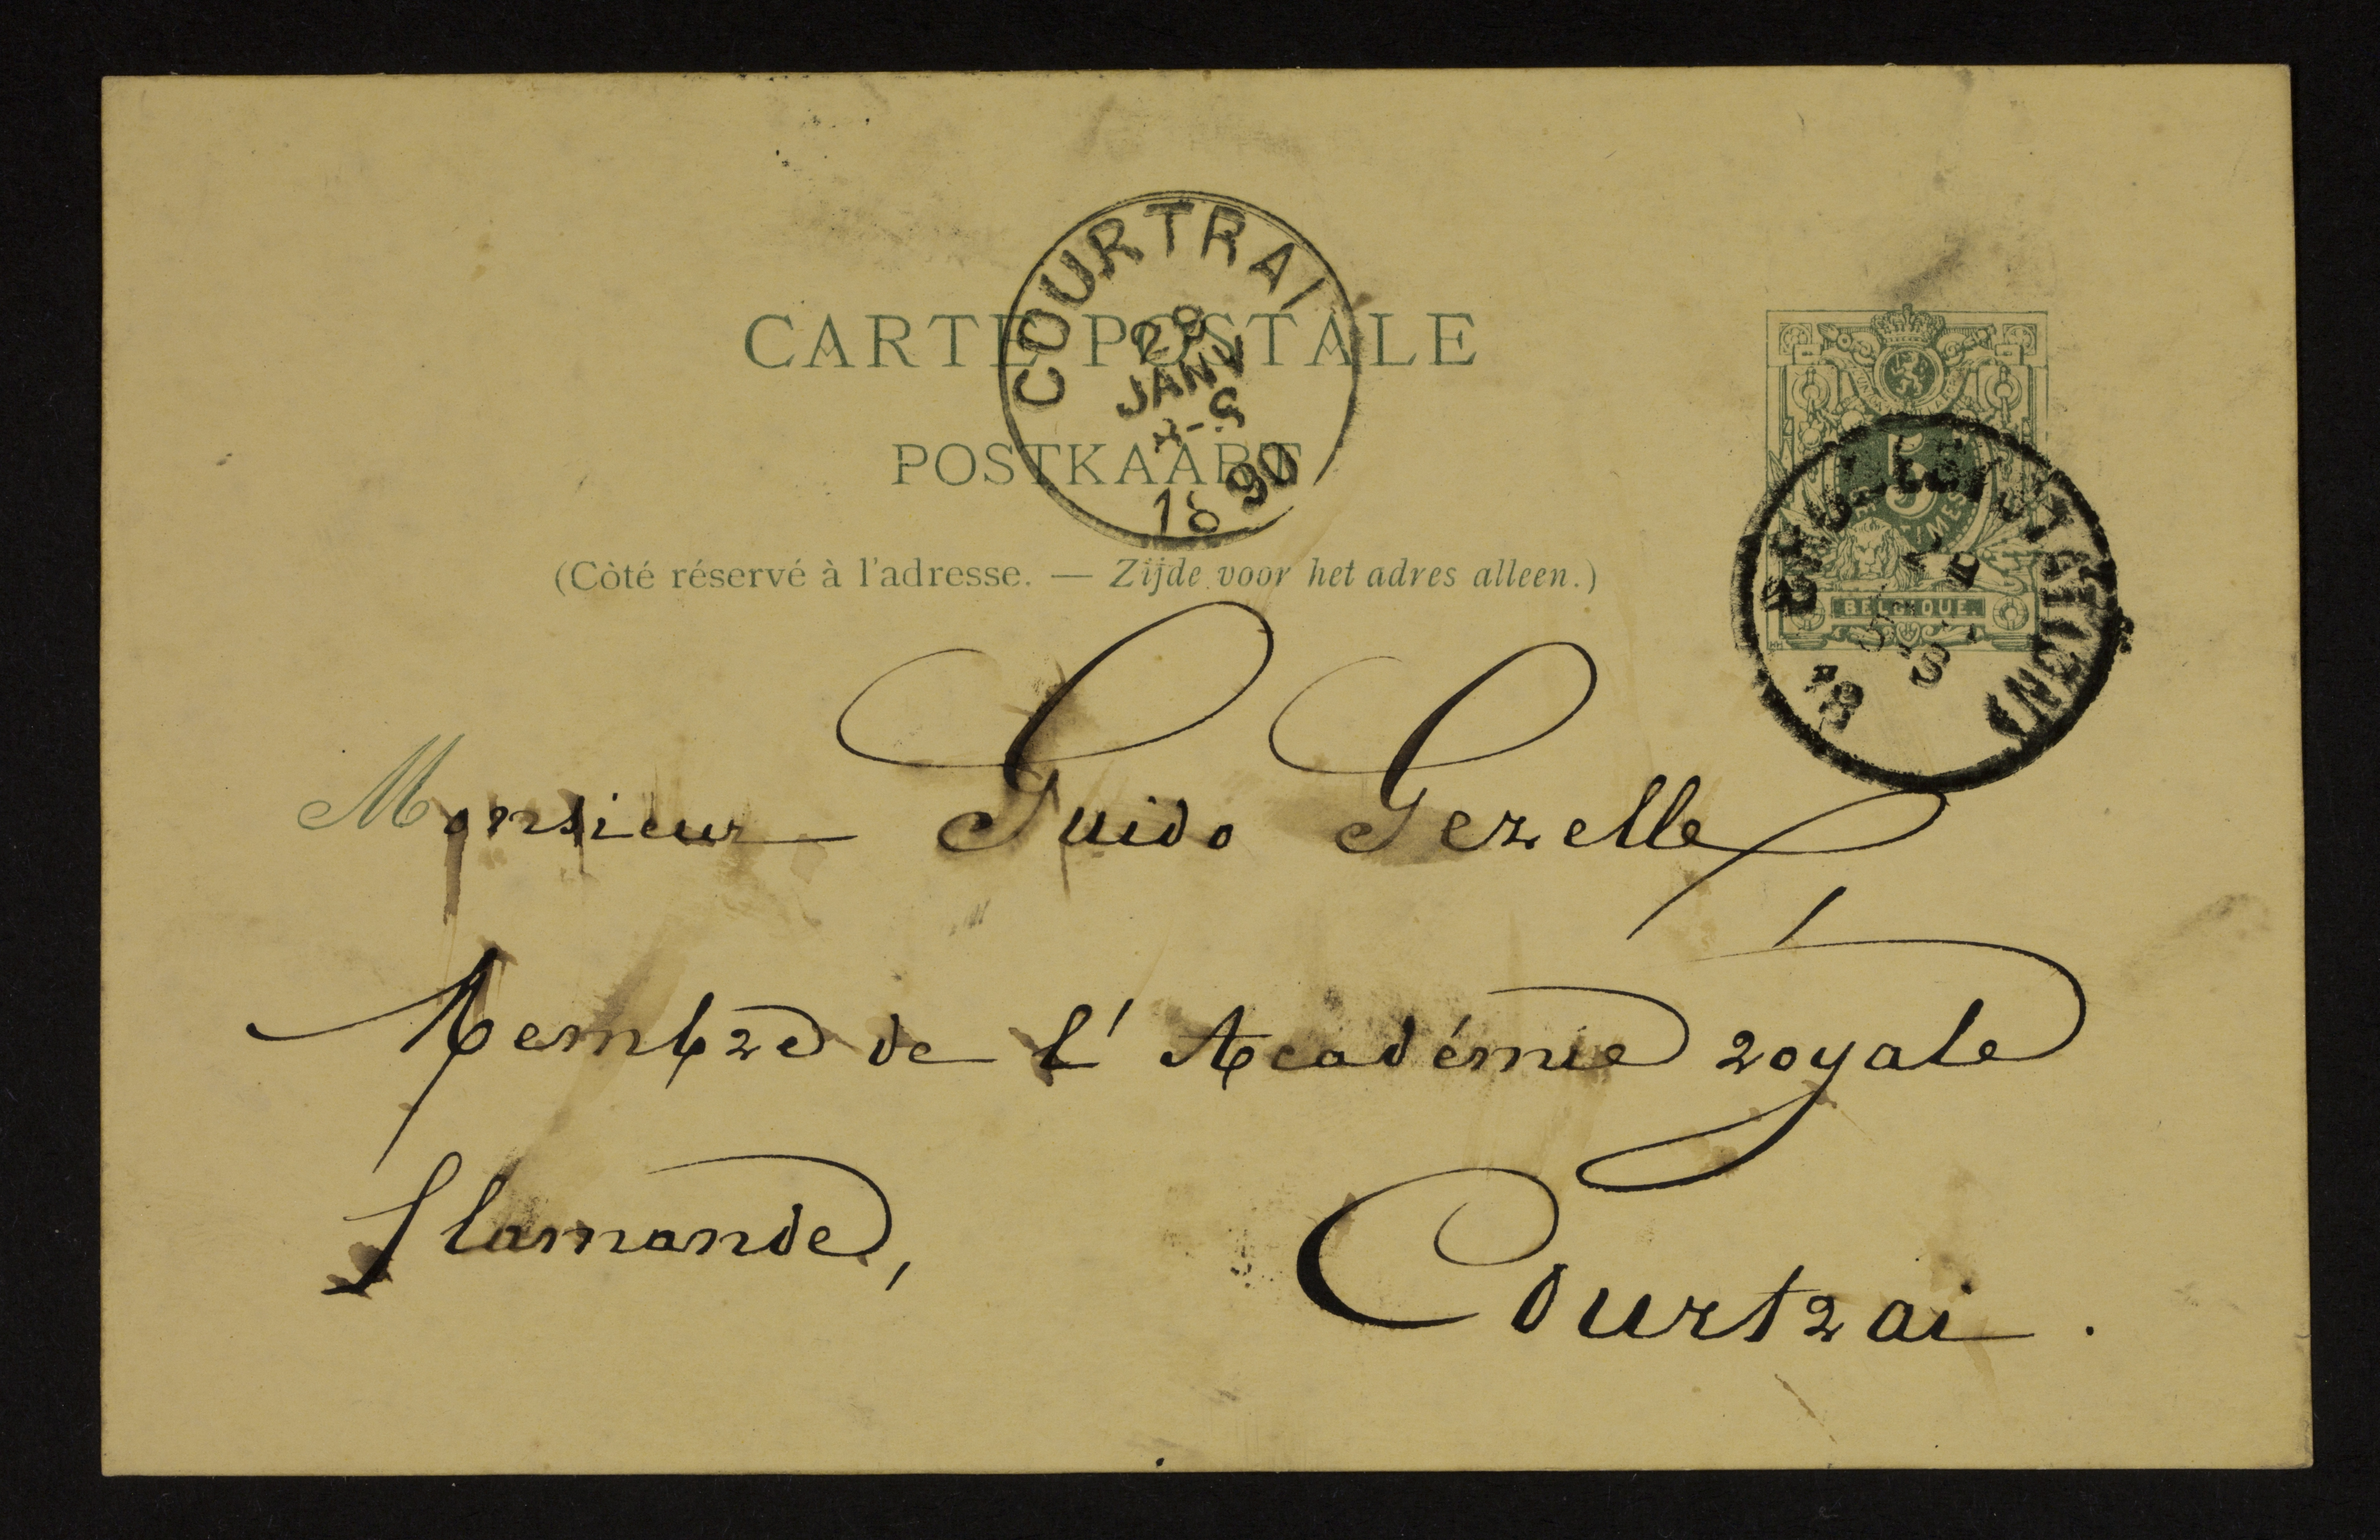 CARTE POSTALE
POSTKAART
(Côté réservé à l'adresse. — Zijde voor het adres alleen.)
COURTRAI
JANV
1890
5
BELGIQUE.
18
Monsieur Guido Gezelle
Membre de l'Académie royale
flamande,
Courtrai.